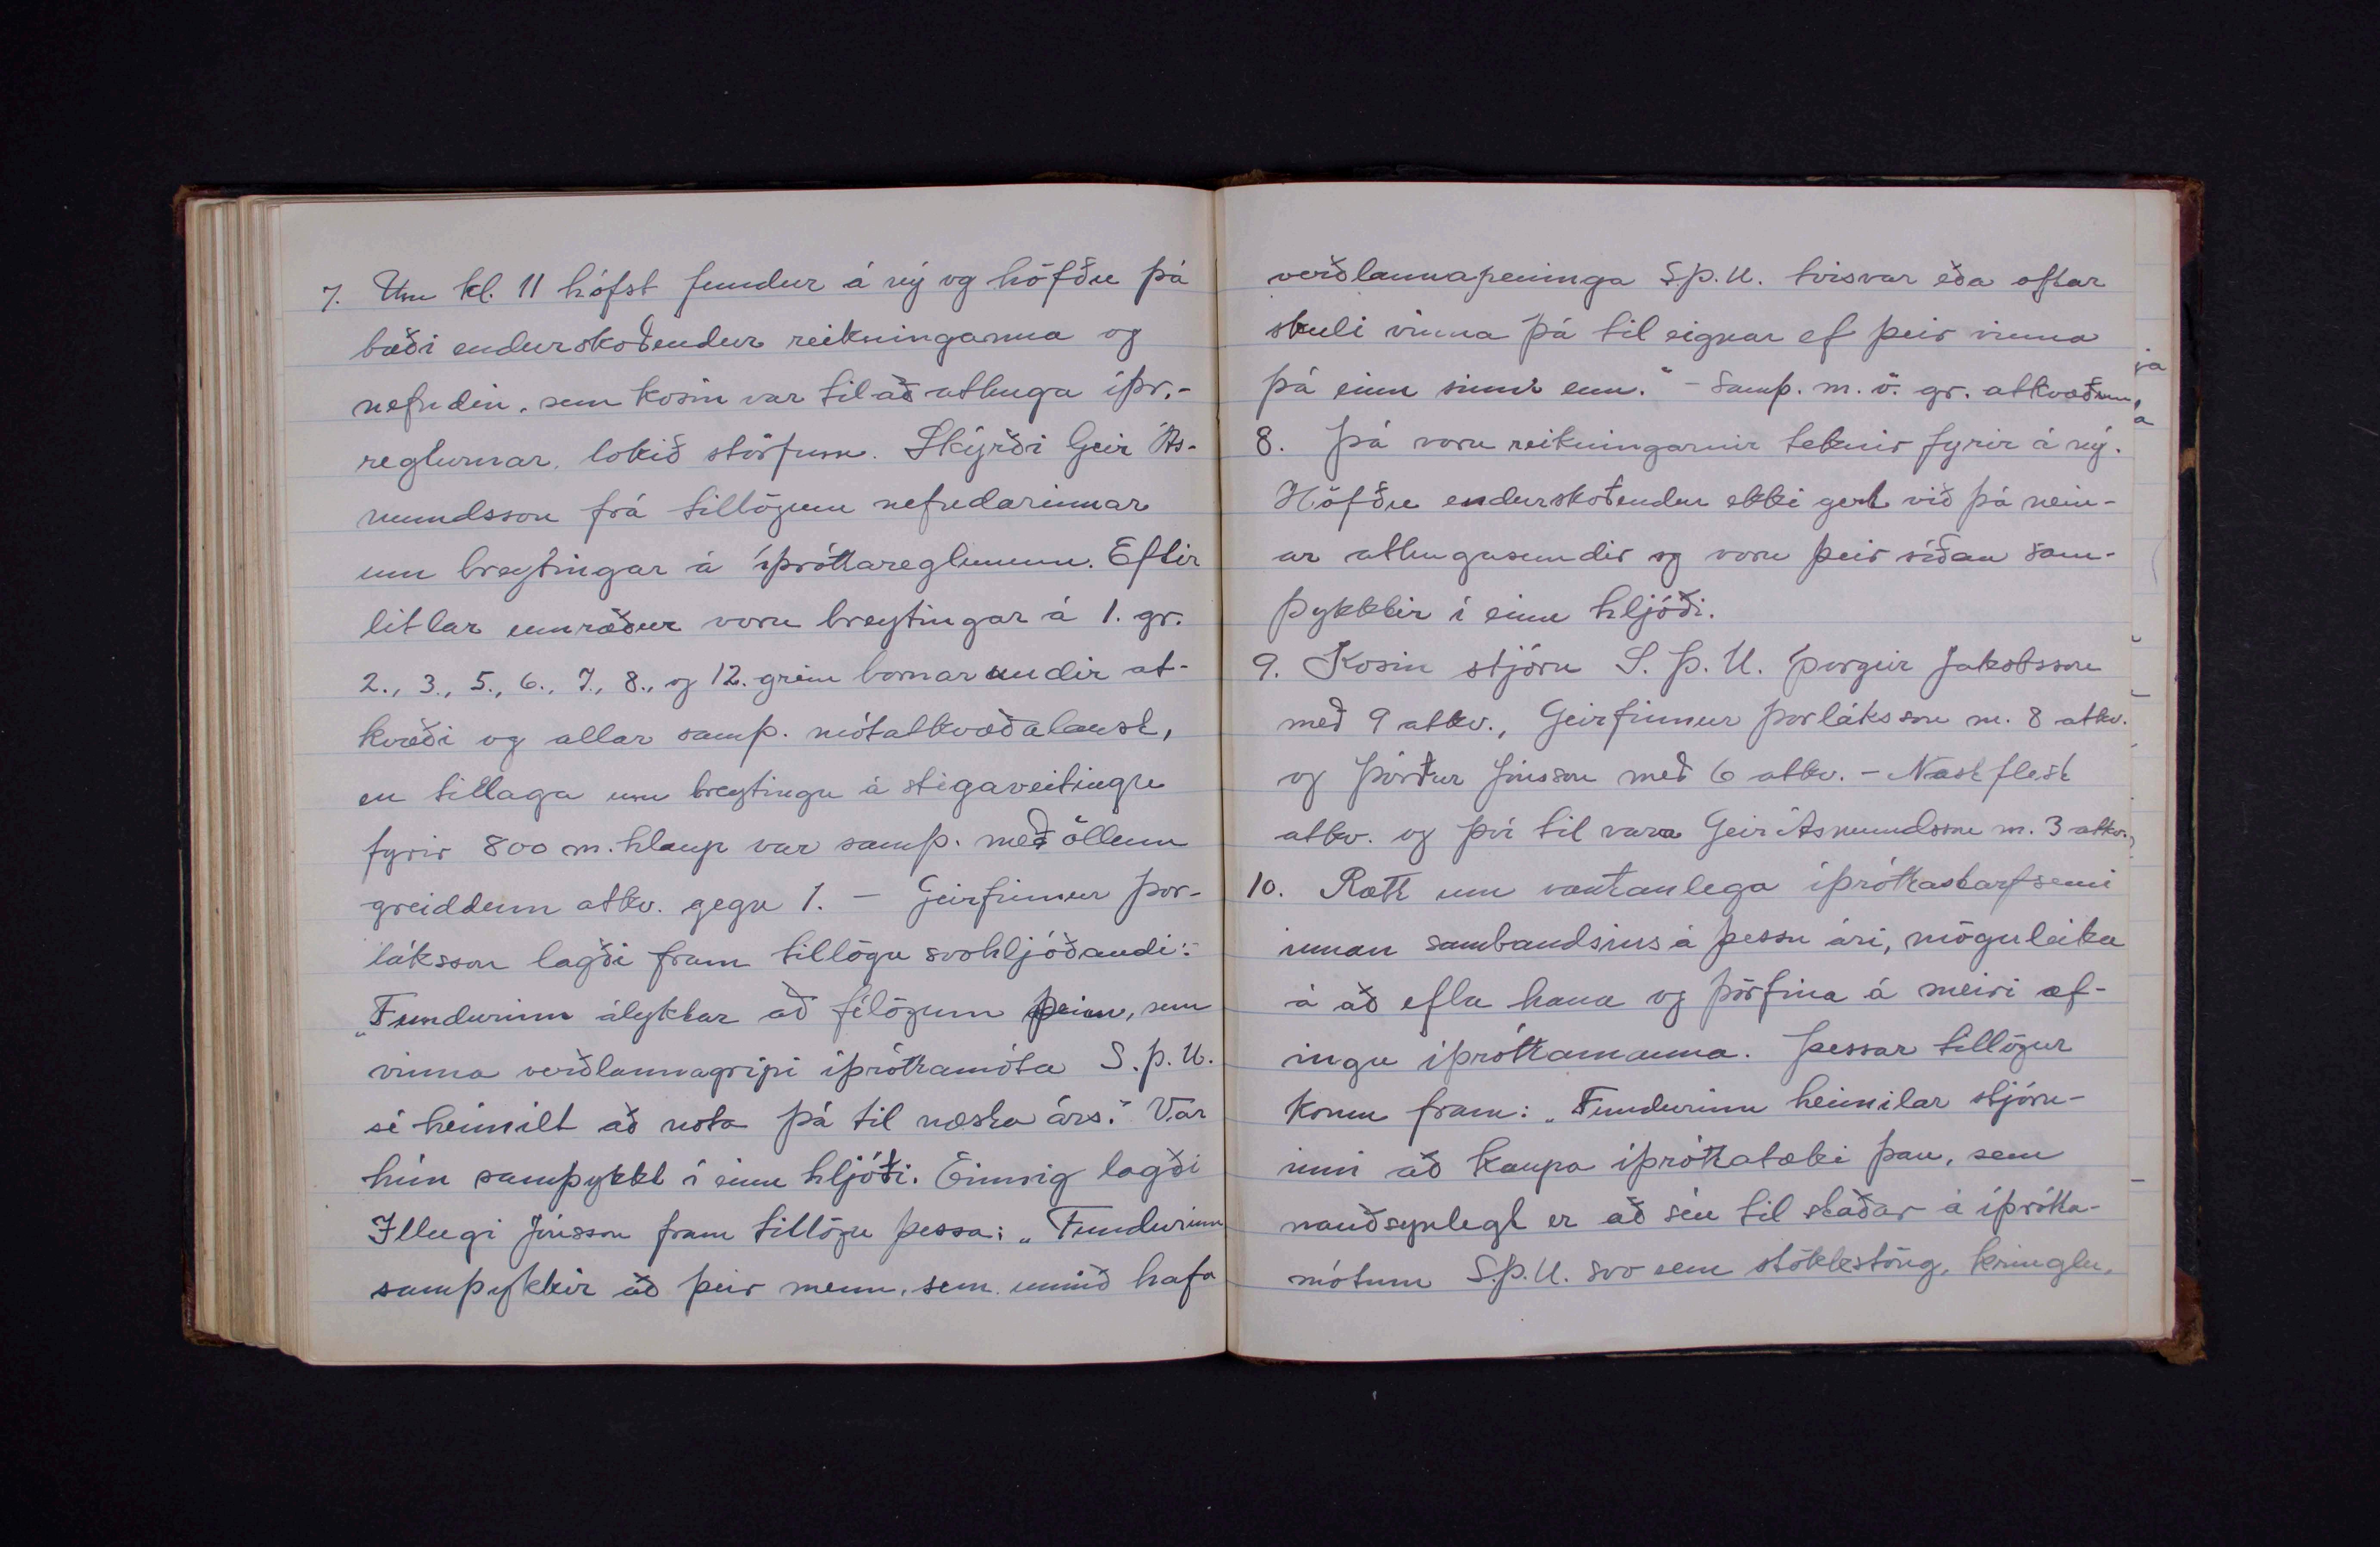 7. Um kl. 11 hófst fundur á ný og höfðu þá
bæði endurskoðendur reikninganna og
nefndin, sem kosin var til að athuga íþr.-
reglurnar, lokið störfum. Skýrði Geir Ás-
mundsson frá tillögum nefndarinnar
um breytingar á íþróttareglunum. Eftir
litlar umræður voru breytingar á 1. gr.
2., 3., 5., 6., 7., 8., og 12. grein bornar undir at-
kvæði og allar samþ. mótatkvæðalaust,
en tillaga um breytingu á stigaveitingu
fyrir 800 m. hlaup var samþ. með öllum
greiddum atkv. gegn 1. — Geirfinnur Þor-
láksson lagði fram tillögu svohljóðandi:
„Fundurinn ályktar að félögum þeim, sem
vinna verðlaunagripi íþróttamóta S.Þ.U.
sé heimilt að nota þá til næsta árs." Var
hún samþykkt í einu hljóði. Einnig lagði
Illugi Jónsson fram tillögu þessa: „Fundurinn
samþykkir að þeir menn, sem unnið hafa
verðlaunapeninga S.Þ.U. tvisvar eða oftar
skuli vinna þá til eignar ef þeir vinna
þá einu sinni enn." - Samþ. m. ö. gr. atkvæðum.
8. Þá voru reikningarnir teknir fyrir á ný.
Höfðu endurskoðendur ekki gert við þá nein-
ar athugasemdir og voru þeir síðan sam-
þykktir í einu hljóði.
9. Kosin stjórn S.Þ.U. Þorgeir Jakobsson
með 9 atkv., Geirfinnur Þorláksson m. 8 atkv.
og Þórður Jónsson með 6 atkv. - Næst flest
atkv. og því til vara Geir Ásmundsson m. 3 atkv.
10. Rætt um væntanlega íþróttastarfsemi
innan sambandsins á þessu ári, möguleika
á að efla hana og þörfina á meiri æf-
ingu íþróttamanna. Þessar tillögur
komu fram: „Fundurinn heimilar stjórn-
inni að kaupa íþróttatæki þau, sem
nauðsynlegt er að séu til staðar á íþrótta-
mótum S.Þ.U. svo sem stökkstöng, kringlu,